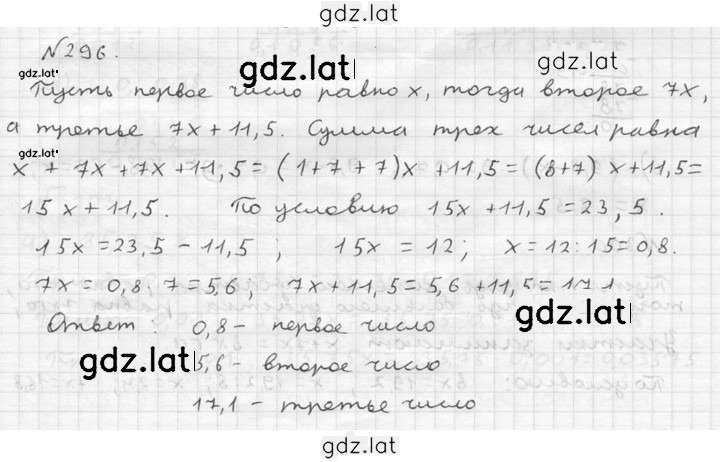 gdz.lat
№296.
gdz.lat gdz.lat gdz.lat
Пусть первое число равно x, тогда второе 7x,
а третье 7x + 11,5. Сумма трех чисел равна
gdz.lat
x + 7x + 7x + 11,5 = (1+7+7)x + 11,5 = (8+7)x + 11,5 =
15x + 11,5. По условию 15x + 11,5 = 23,5.
15x = 23,5 - 11,5; 15x = 12; x = 12:15 = 0,8.
7x = 0,8 · 7 = 5,6; 7x + 11,5 = 5,6 + 11,5 = 17,1
Ответ: 0,8 - первое число
gdz.lat
gdz.lat
5,6 - второе число
17,1 - третье число
gdz.lat